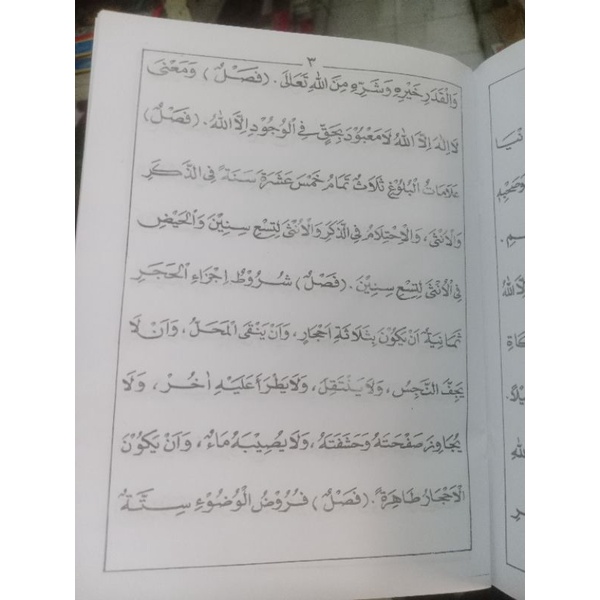 ٣
وَالْقَدَرِ خَيْرِهِ وَشَرِّهِ مِنَ اللهِ تَعَالَى. (فَصْلٌ) وَمَعْنَى
لَا إِلٰهَ إِلَّا اللهُ لَا مَعْبُودَ بِحَقٍّ فِي الْوُجُودِ إِلَّا اللهُ. (فَصْلٌ)
عَلَامَاتُ الْبُلُوْغِ ثَلَاثٌ تَمَامُ خَمْسَ عَشَرَةَ سَنَةً فِي الذَّكَرِ
وَالْاُنْثَى، وَالْاِحْتِلَامُ فِي الذَّكَرِ وَالْاُنْثَى لِتِسْعِ سِنِيْنَ وَالْحَيْضُ
فِي الْاُنْثَى لِتِسْعِ سِنِيْنَ. (فَصْلٌ) شُرُوْطُ اِجْزَاءِ الْحَجَرِ
ثَمَانِيَةٌ اَنْ يَكُوْنَ بِثَلَاثَةِ اَحْجَارٍ، وَاَنْ يَنْقَى الْمَحَلَّ، وَاَنْ لَا
يَجِفَّ النَّجِسُ، وَلَا يَنْتَقِلَ، وَلَا يَطْرَأَ عَلَيْهِ اٰخَرُ، وَلَا
يُجَاوِزَ صَفْحَتَهُ وَحَشَفَتَهُ، وَلَا يُصِيْبَهُ مَاءٌ، وَاَنْ يَكُوْنَ
الْاَحْجَارُ طَاهِرَةً. (فَصْلٌ) فُرُوْضُ الْوُضُوْءِ سِتَّةٌ